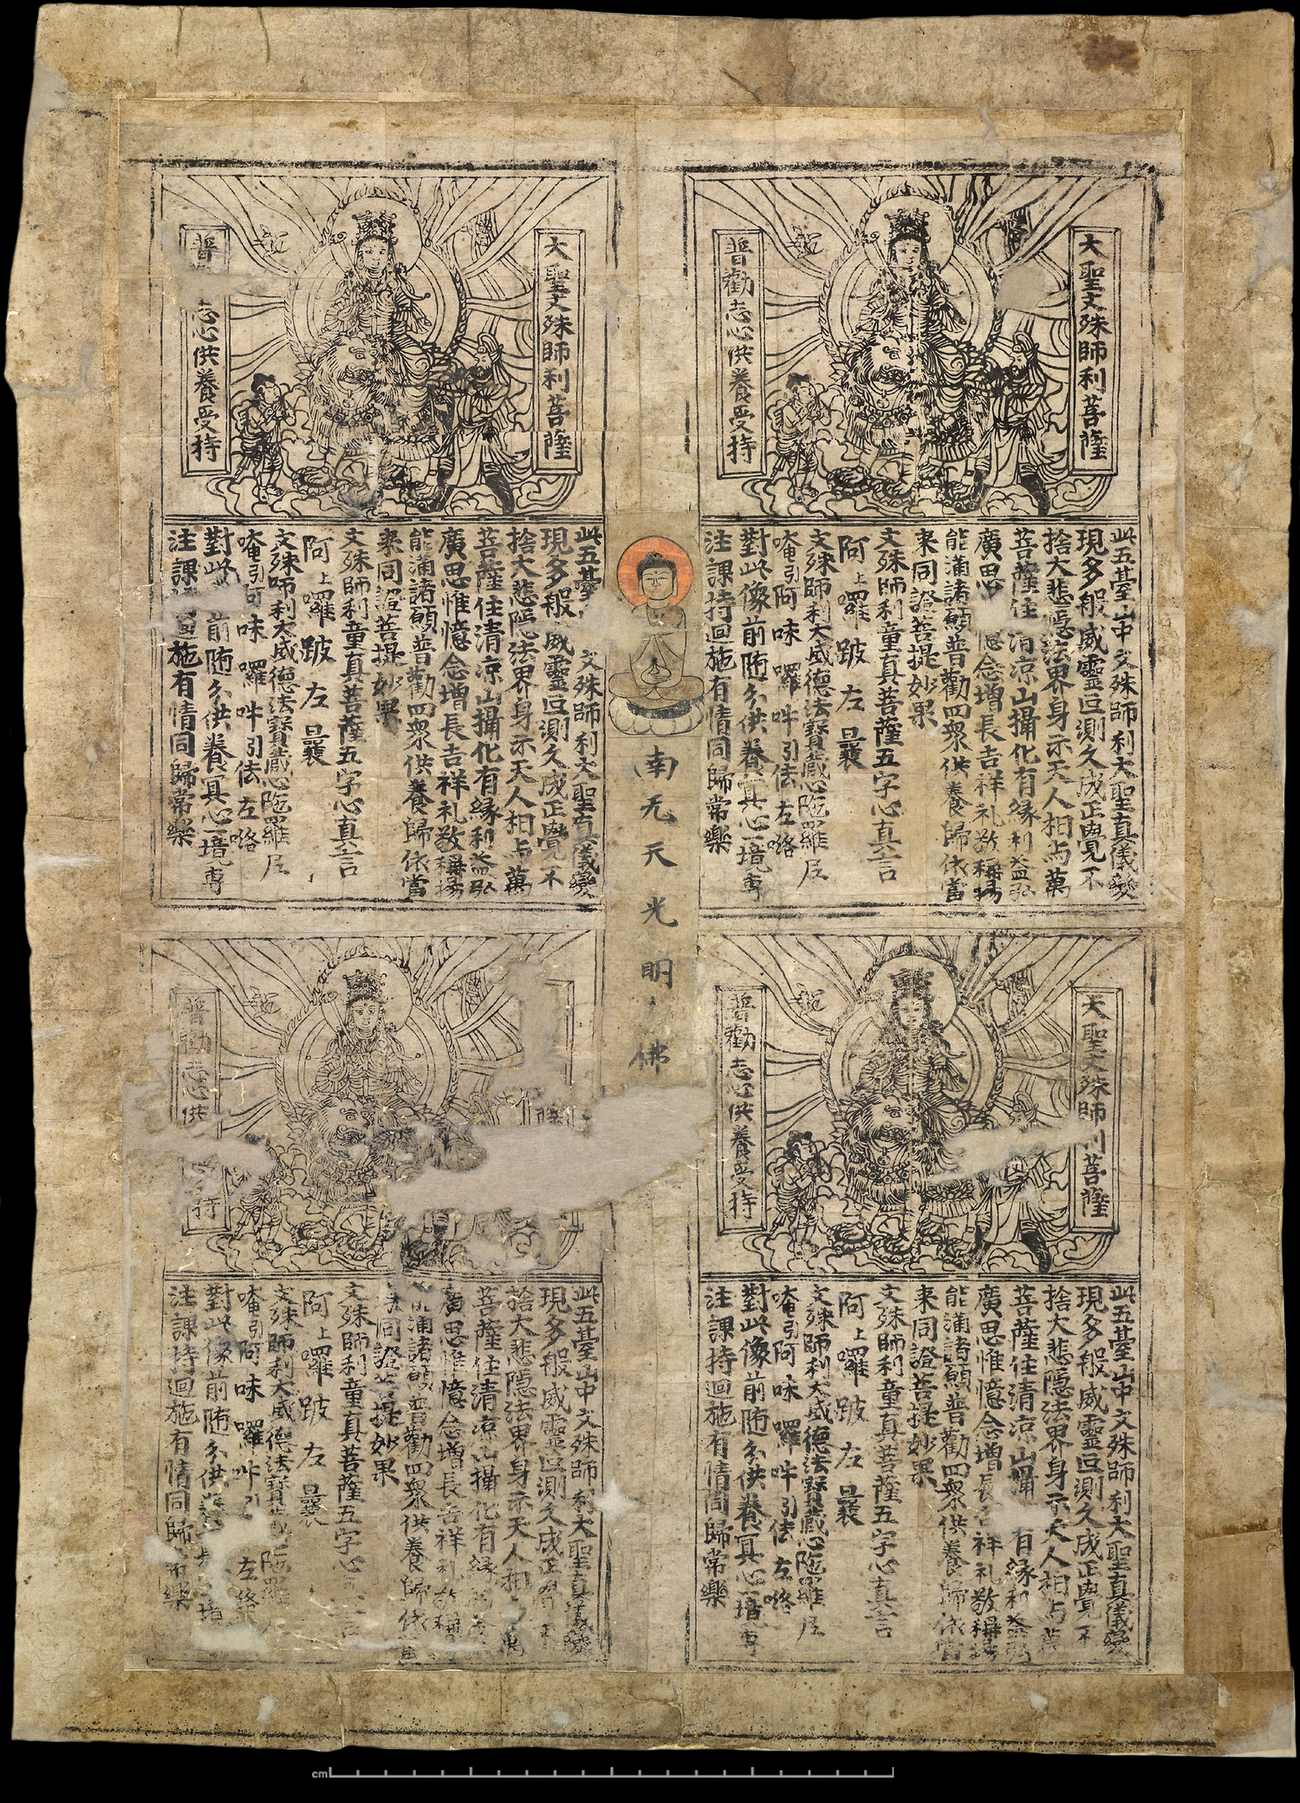 大聖文殊師利菩薩
普勸志心供養受持
此五臺山中文殊師利大聖真儀變
現多般威靈叵測久成正覺不
捨大悲隱法界身示天人相与萬
菩薩住清凉山攝化有緣利益弘
廣思憶念增長吉祥礼敬稱揚
能滿諸願普勸四衆供養歸依當
来同證菩提妙果
文殊師利童真菩薩五字心真言
阿上囉跛左曩
文殊師利大威德法寶藏心陁羅尼
唵引阿味囉吽引佉左咯
對此像前随分供養冥心一境專
注課持迴施有情同歸常樂
大聖文殊師利菩薩
普志心供養受持
此五臺文殊師利大聖真儀變
現多般威靈叵測久成正覺不
捨大悲隱法界身示天人相与萬
菩薩住清凉山攝化有緣利益弘
廣思惟憶念增長吉祥礼敬稱揚
能滿諸願普勸四衆供養歸依當
来同證菩提妙果
文殊師利童真菩薩五字心真言
阿上囉跛左曩
文殊師利大威德法寶藏心陁羅尼
唵引阿味囉吽引佉左咯
對此前随分供養冥心一境專
注課迴施有情同歸常樂
南无天光明佛
大聖文殊師利菩薩
普勸志心供養受持
此五臺山中文殊師利大聖真儀變
現多般威靈叵測久成正覺不
捨大悲隱法界身示天人相与萬
菩薩住清凉山攝有緣利益弘
廣思惟憶念增長吉祥礼敬稱揚
能滿諸願普勸四衆供養歸依當
来同證菩提妙果
文殊師利童真菩薩五字心真言
阿上囉跛左曩
文殊師利大威德法寶藏心陁羅尼
唵引阿味囉吽引佉左咯
對此像前随分供養冥心一境專
注課持迴施有情同歸常樂
普勸志心供持
此五臺山中文殊師利大聖真儀變
現多般威靈叵測久成正不
捨大悲隱法界身示天人相萬
菩薩住清凉山攝化有緣
廣思惟憶念增長吉祥礼敬稱
滿諸願普勸四衆供養歸依當
同證菩提妙果
文殊師利童真菩薩五字心言
阿上囉跛左曩
文殊師利大威德法寶藏陁羅
唵引阿味囉吽引左咯
對此像前随分供養境
注課持迴施有情同歸常樂